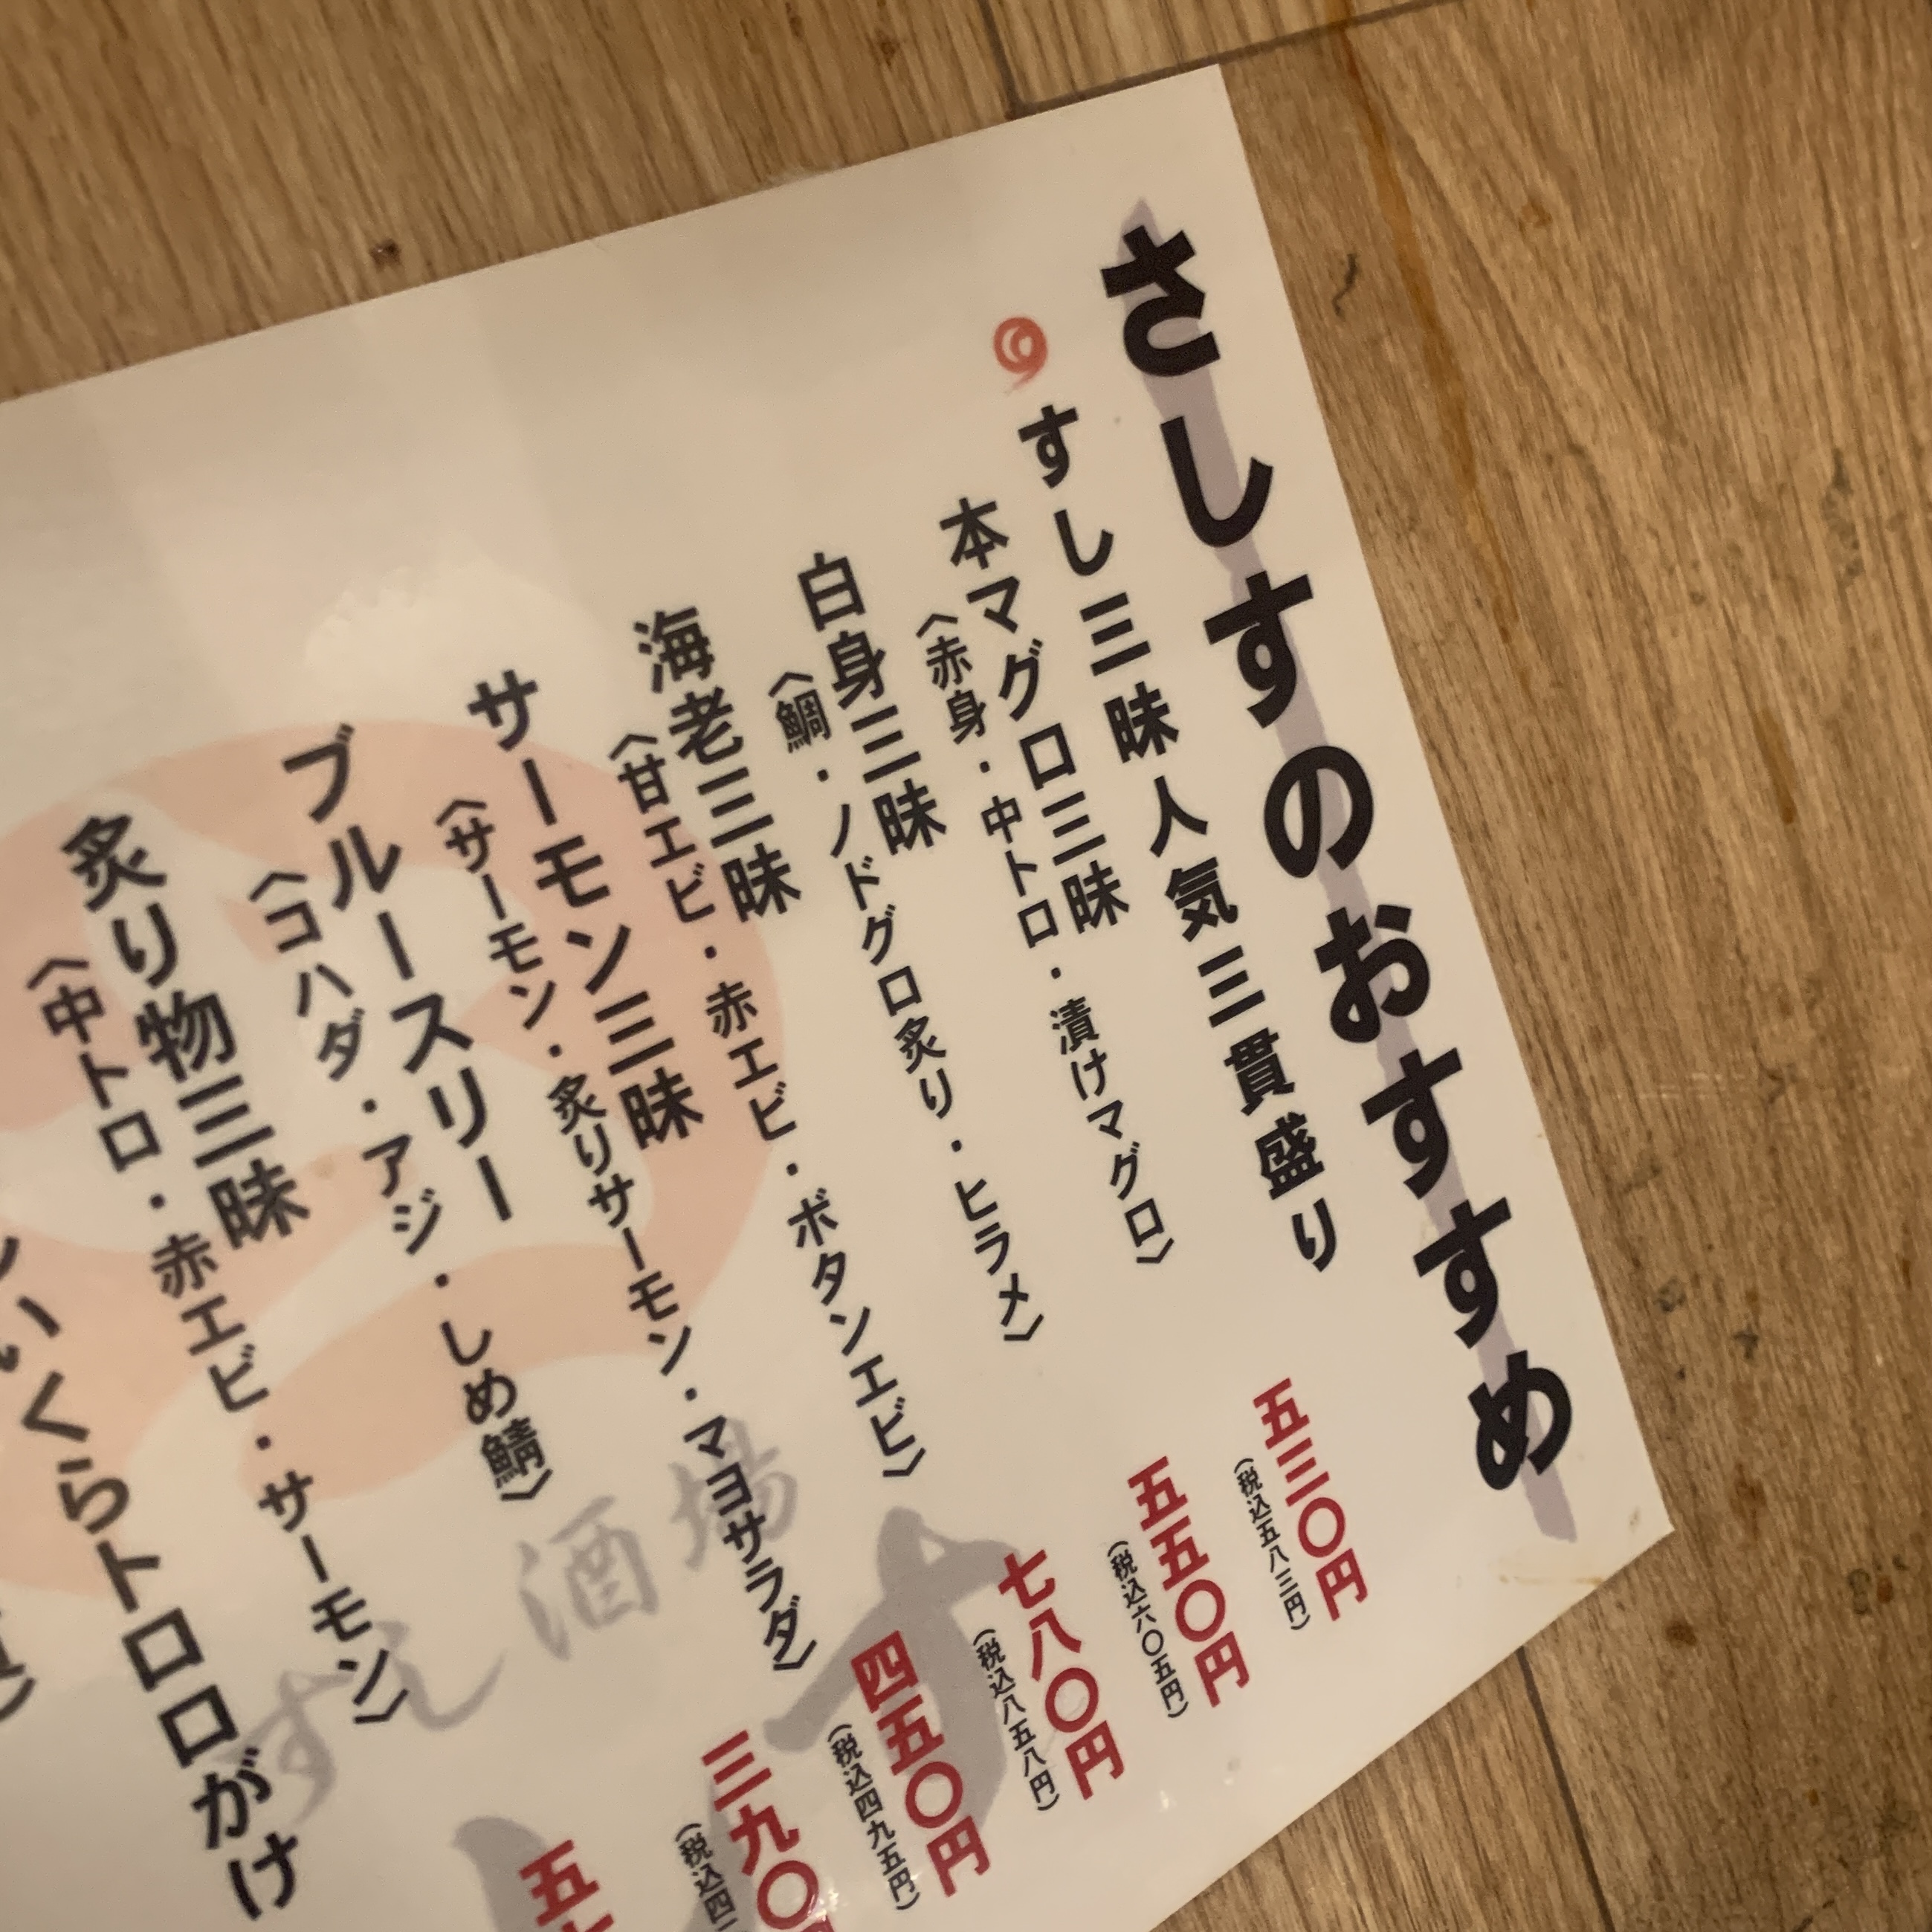 さしすのおすすめ
すし三昧人気三貫盛り
本マグロ三昧
〈赤身・中トロ・漬けマグロ〉
五三〇円
(税込五八三円)
白身三昧
〈鯛・ノドグロ炙り・ヒラメ〉
五五〇円
(税込六〇五円)
海老三昧
〈甘エビ・赤エビ・ボタンエビ〉
七八〇円
(税込八五八円)
サーモン三昧
〈サーモン・炙りサーモン・マヨサラダ〉
四五〇円
(税込四九五円)
ブルースリー
〈コハダ・アジ・しめ鯖〉
三九〇
(税込四二
炙り物三昧
〈中トロ・赤エビ・サーモン〉
五
いくらトロロがけ
すし酒場